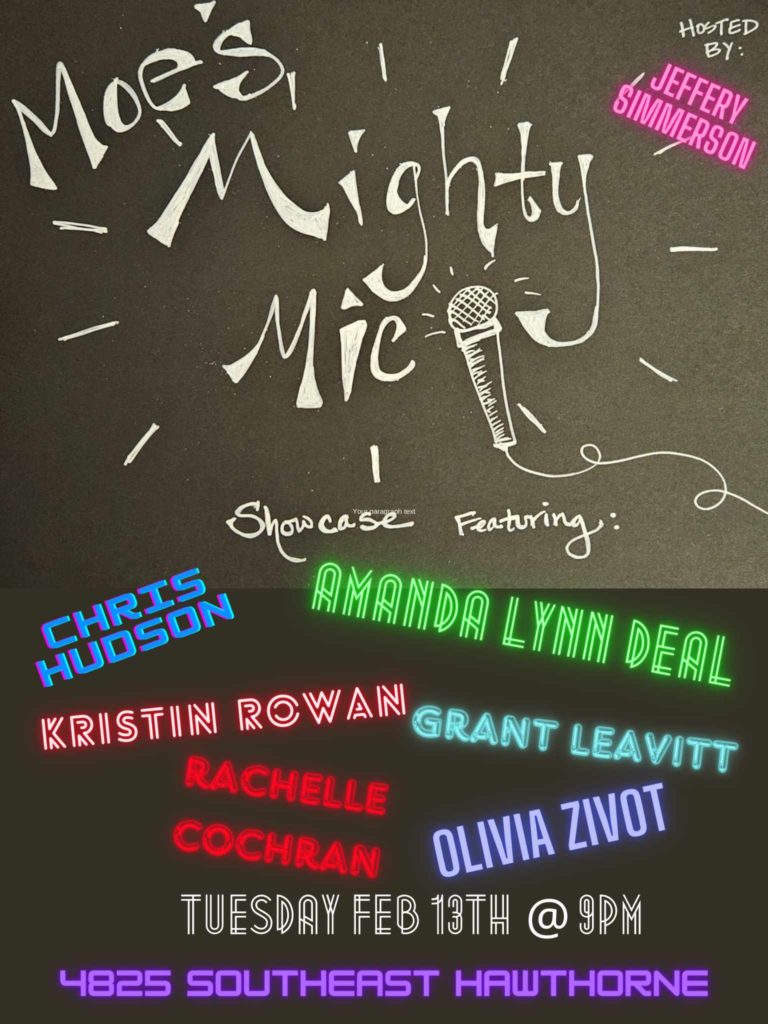 Moe's
Mighty
Mic
HOSTED
BY:
JEFFERY
SIMMERSON
Showcase Featuring:
Your paragraph text
CHRIS
HUDSON
AMANDA LYNN DEAL
KRISTIN ROWAN
GRANT LEAVITT
RACHELLE
COCHRAN
OLIVIA ZIVOT
TUESDAY FEB 13TH @ 9PM
4825 SOUTHEAST HAWTHORNE